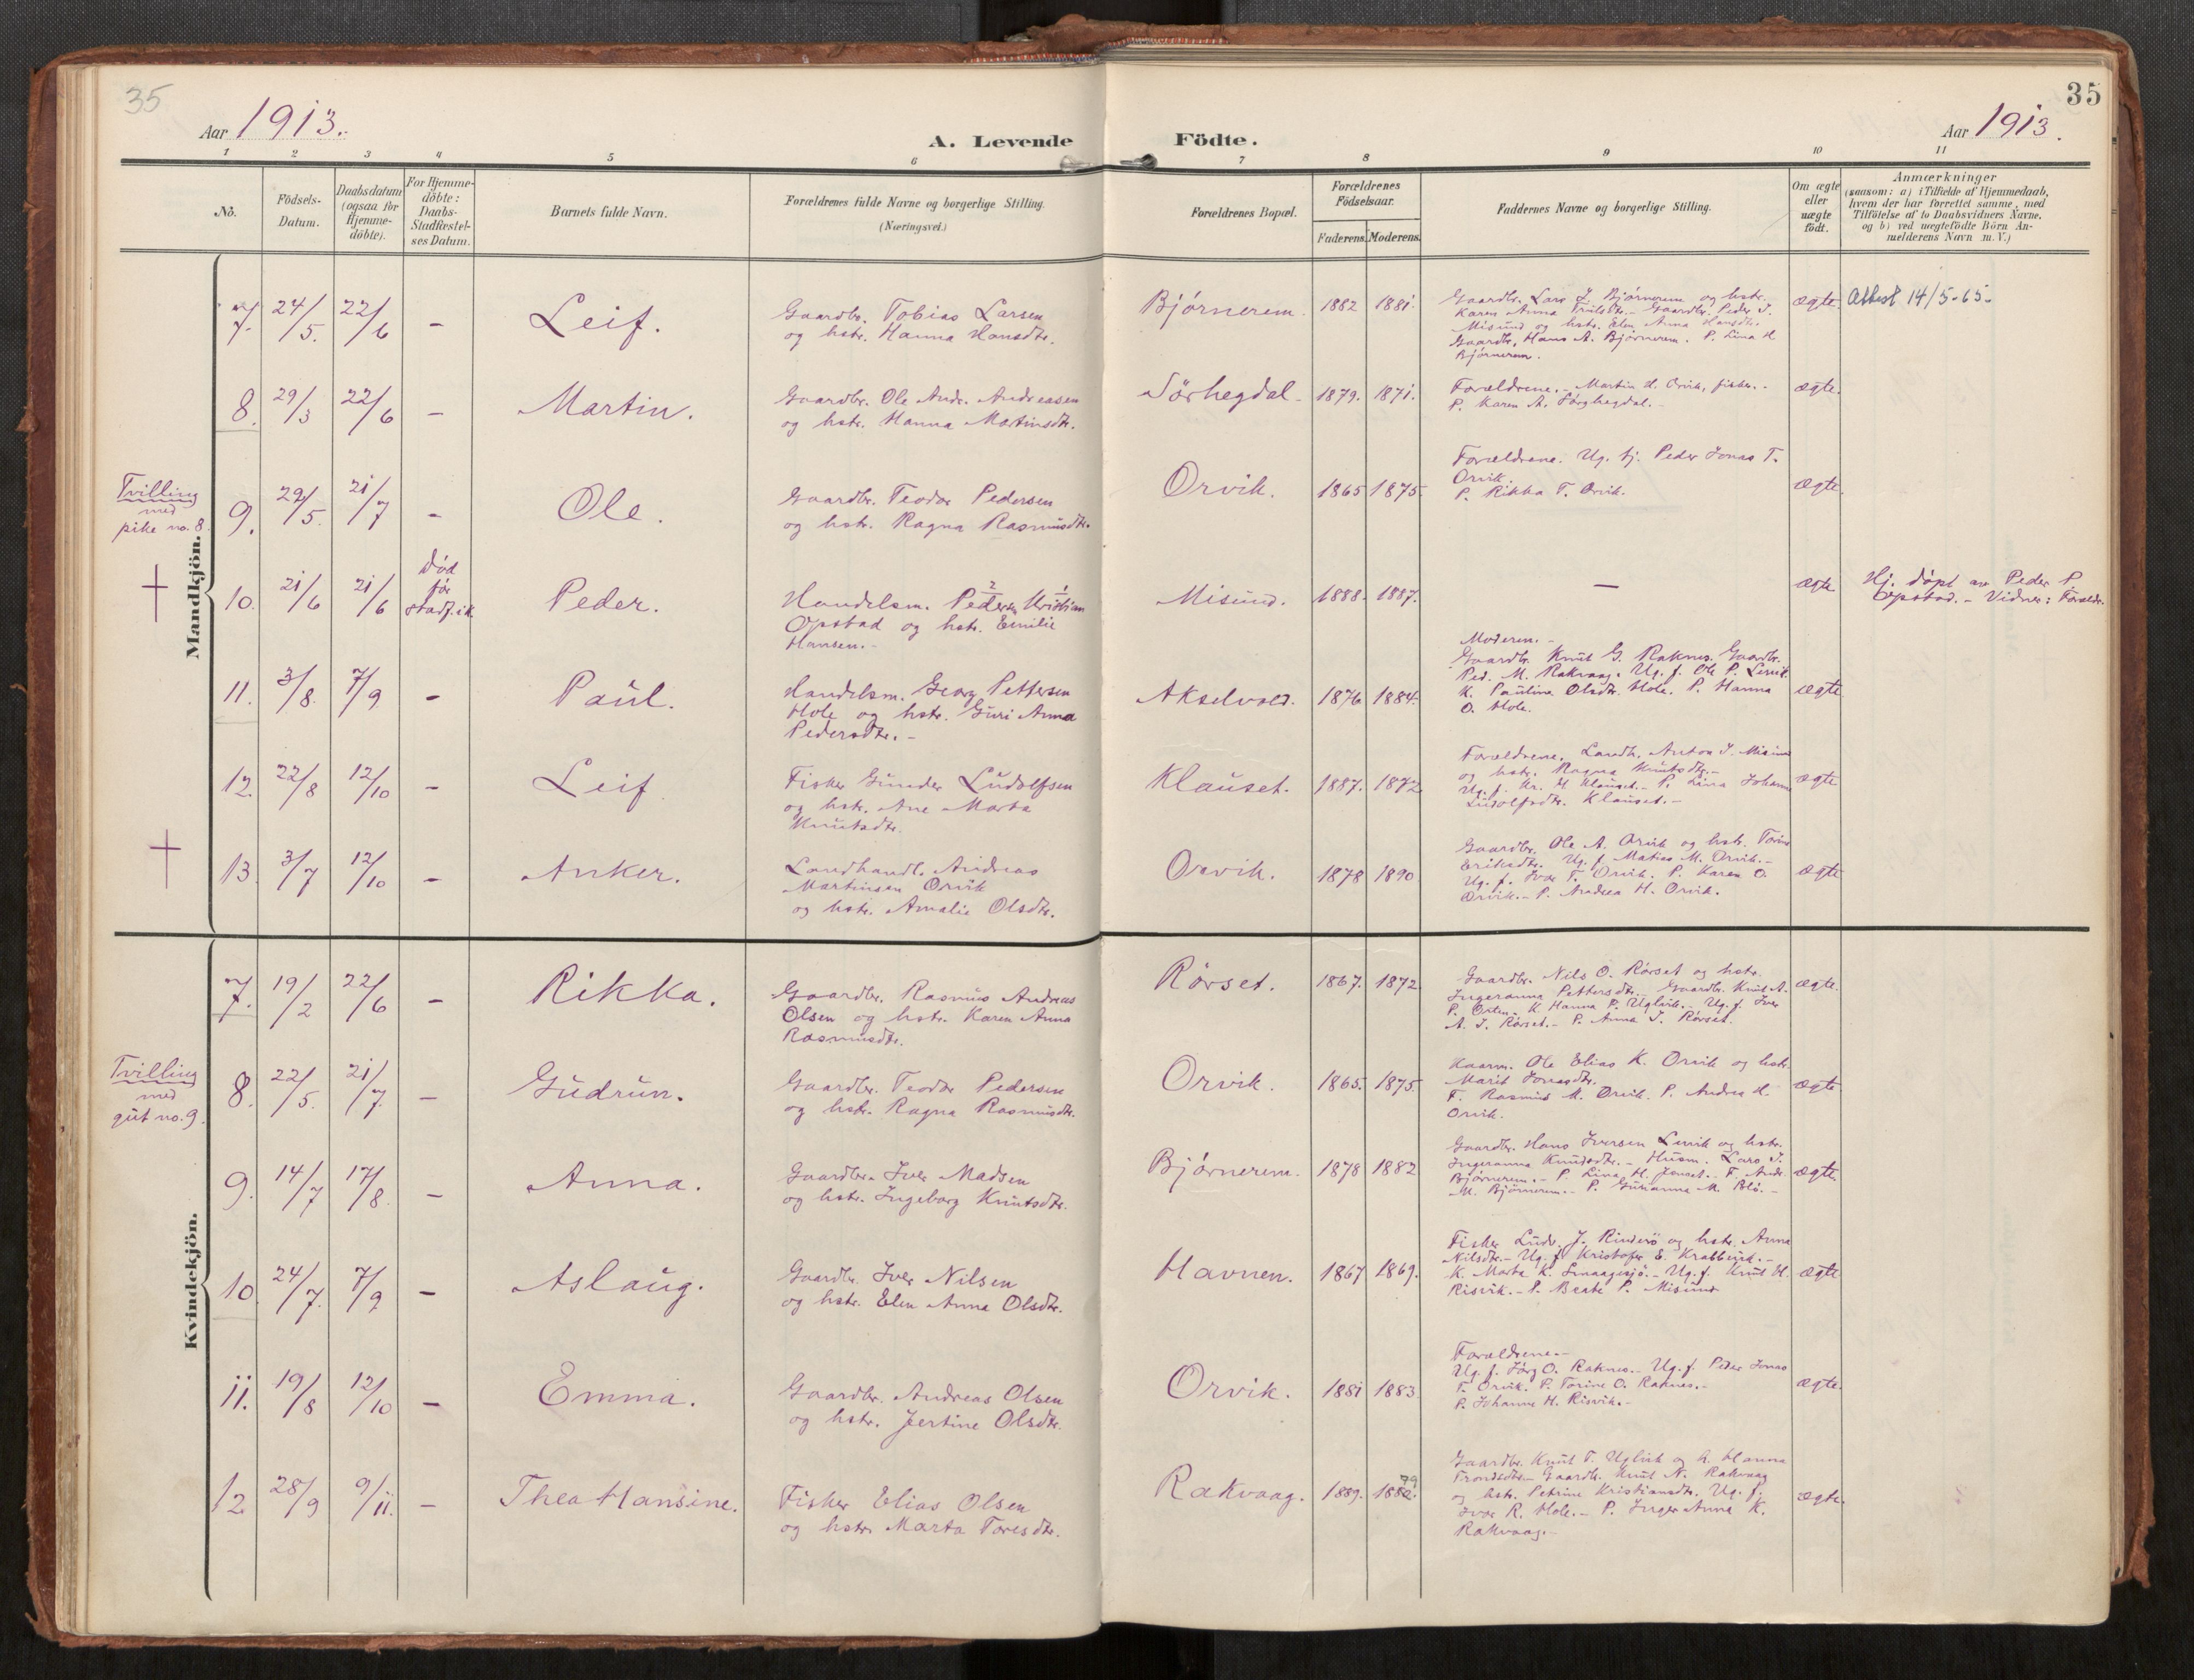 35
35
Aar 1913.
A. Levende Födte.
Aar 1913.
1 2 3 4 5 6 7 8 9 10 11
No.
Födsels-Datum.
Daabsdatum (ogsaa for Hjemme-döbte).
For Hjemme-döbte: Daabs-Stadfæstel-ses Datum.
Barnets fulde Navn.
Forældrenes fulde Navne og borgerlige Stilling. (Næringsvei.)
Forældrenes Bopæl.
Forældrenes Födselsaar.
Faderens. Moderens.
Faddernes Navne og borgerlige Stilling.
Om ægte eller uægte födt.
Anmærkninger
(saasom: a) i Tilfælde af Hjemmedaab,
hvem der har forrettet samme, med
Tilföielse af to Daabsvidners Navne.
og b) ved uægtefödte Börn An-
melderens Navn m.V.)
Mandkjön.
7. 24/5. 22/6 - Leif.
Gaardbr. Tobias Larsen
og hstr. Hanna Hansdtr.
Bjørnerem. 1882 1881.
Gaardbr. Lars J. Bjørnerem og hstr.
Karen Anna Trulsdtr. - Gaardbr. Peder J.
Misund og hstr. Elen Anna Hansdtr.
Gaardbr. Hans A. Bjørnerem. P. Lina H
Bjørnerem.
ægte. Attest 14/5-65.
8. 29/3 22/6 - Martin.
Gaardbr. Ole Andr. Andreasen
og hstr. Hanna Martinsdtr.
Sørhegdal. 1879. 1871.
Forældrene. - Martin H. Orvik, fisker. -
P. Karen A. Sørhegdal. -
ægte.
Tvilling
med
pike no. 8.
9. 22/5. 21/7 - Ole.
Gaardbr. Teodor Pedersen
og hstr. Ragna Rasmusdtr.
Orvik. 1865 1875.
Forældrene. Ug. tj. Peder Jonas T.
Orvik.
P. Rikka T. Orvik.
ægte.
† 10. 21/6 21/6 Død før stadf. ik. Peder.
2 1
Handelsm. Pedersen Kristian
Opstad og hstr. Emilie
Hansen. -
Misund. 1888. 1887. —
ægte
Hj. døpt av Peder P.
Opstad. - Vidner: Forældr.
11. 3/8. 7/9 - Paul.
Handelsm. Georg Pettersen
Hole og hstr. Guri Anna
Pedersdtr. -
Akselvold. 1876 1884.
Moderen. -
Gaardbr. Knut G. Raknes. Gaardbr.
Ped. M. Rakvaag. Ug. f. Ole P. Lervik.
K. Pauline Olsdtr. Hole. P. Hanna
O. Hole.
ægte
12. 22/8 12/10 - Leif
Fisker Gunder Ludolfsen
og hstr. Ane Marta
Knutsdtr.
Klauset. 1887. 1872
Forældrene. Landh. Anton J. Misund
og hstr. Ragna Knutsdtr. -
Ug. f. Kr. H Klauset. - P. Lina Johanna
Ludolfsdtr. Klauset. -
ægte
† 13. 3/7 12/10 - Anker.
Landhandl. Andreas
Martinsen Orvik
og hstr. Amalie Olsdtr.
Orvik. 1878 1890
Gaardbr. Ole A. Orvik og hstr. Torine
Eriksdtr. Ug. f. Matias M. Orvik. -
Ug. f. Ivar T. Orvik. P. Karen O.
Orvik. - P. Andrea H. Orvik.
ægte
Kvindekjön.
7. 19/2 22/6 - Rikka.
Gaardbr. Rasmus Andreas
Olsen og hstr. Karen Anna
Rasmusdtr.
Rørset. 1867. 1872
Gaardbr. Nils O. Rørset og hstr.
Ingeranna Pettersdtr. - Gaardbr. Knut A.
P. Orten. K Hanna P. Uglvik. - Ug. f. Iver
A. J. Rørset. - P. Anna J. Rørset.
ægte.
Tvilling
med
gut no. 9.
8. 22/5. 21/7. - Gudrun.
Gaardbr. Teodor Pedersen
og hstr. Ragna Rasmusdtr.
Orvik. 1865. 1875
Kaarm. Ole Elias K. Orvik og hstr.
Marit Jonasdtr.
F. Rasmus M. Orvik. P. Andrea H.
Orvik.
ægte.
9. 14/7 17/8. - Anna.
Gaardbr. Iver Madsen
og hstr. Ingeborg Knutsdtr.
Bjørnerem. 1878 1882
Gaardbr. Hans Iversen Lervik og hstr.
Ingeranna Knudsdtr. - Husm. Lars J.
Bjørnerem. - P. Lina H. Jenset. - F. Andr.
M. Bjørnerem. - P. Gurianna M. Blø. -
ægte.
10. 24/7. 7/9 - Aslaug.
Gaardbr. Iver Nilsen
og hstr. Elen Anna Olsdtr.
Havnen. 1867 1869.
Fisker Ludv. J. Rinderø og hstr. Anna
Nilsdtr. - Ug. f. Kristofer E. Krabbevik. -
K. Marta K. Smaagesjø. - Ug. f. Knut H.
Risvik. - P. Beate P. Misund
ægte
11. 19/8 12/10 - Emma.
Gaardbr. Andreas Olsen
og hstr. Jertine Olsdtr.
Orvik. 1881 1883
Forældrene. -
Ug. f. Jørg O. Raknes. - Ug. f. Peder Jonas
T. Orvik. P. Torine O. Raknes. -
P. Johanne H. Risvik. -
ægte.
12 28/9 9/11. - Thea Hansine.
Fisker Elias Olsen
og hstr. Marta Toresdtr.
Rakvaag. 1889. 1882. 79
Gaardbr. Knut T. Uglvik og h. Hanna
Trondsdtr. - Gaardb. Knut N. Rakvaag
og hstr. Petrine Kristiansdtr. Ug. f.
Ivar R. Hole. - P. Inger Anna K.
Rakvaag. -
ægte.